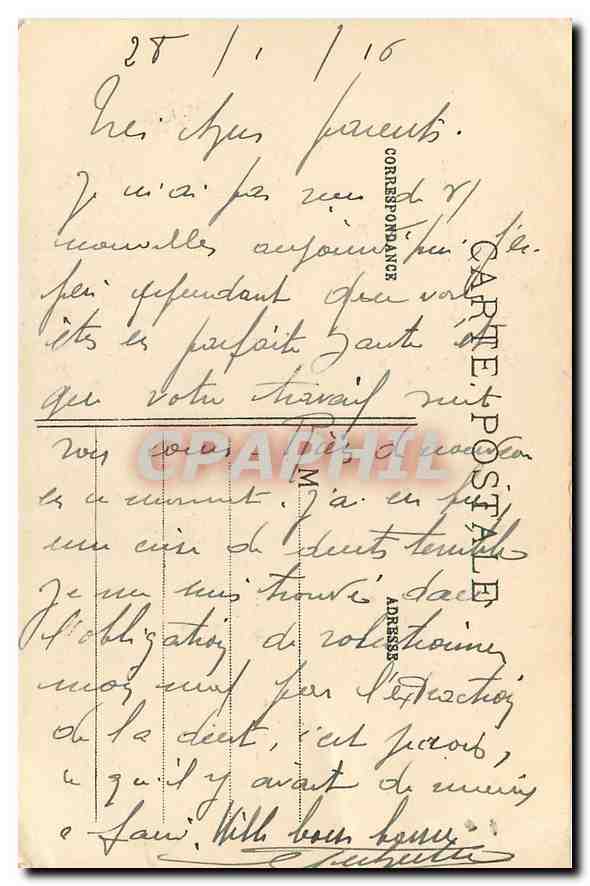 28 / 1 / 16
Très chers parents.
Je n'ai pas rien de vs/
nouvelles aujourd'hui. J'es-
père cependant que vous
êtes en parfaite santé et
que votre travail suit
son cours. Rien de nouveau
en ce moment. J'ai eu
une crise de dents terrible
Je me suis trouvé dans
l'obligation de
mon mal par l'extraction
de la dent, c'est je crois,
ce qu'il y avait de mieux
à faire. Mille bons baisers
CORRESPONDANCE
CARTE POSTALE
ADRESSE
M
CPAPHIL